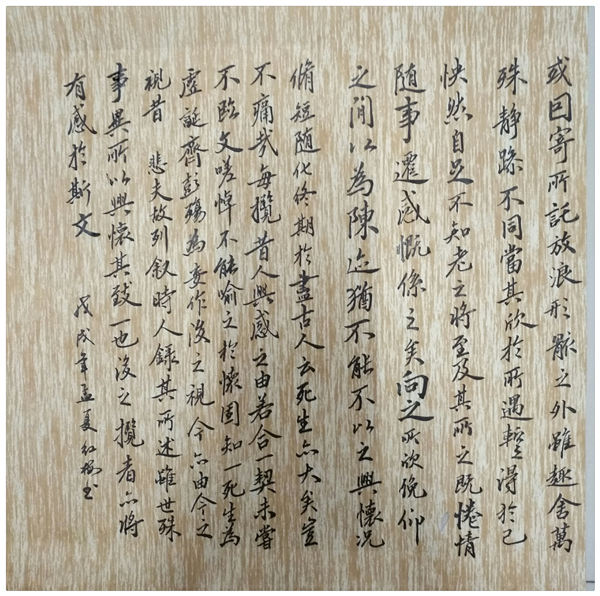 或因寄所託放浪形骸之外雖趣舍萬
殊静躁不同當其欣於所遇蹔得於己
快然自足不知老之將至及其所之既惓情
随事遷感慨係之矣向之所欣俛仰
之間以為陳迹猶不能不以之興懷況
脩短随化终期於盡古人云死生亦大矣豈
不痛哉每攬昔人興感之由若合一契未嘗
不臨文嗟悼不能喻之於懷固知一死生為
虛誕齊彭殤為妄作後之視今亦由今之
視昔 悲夫故列叙時人錄其所述雖世殊
事異所以興懷其致一也後之攬者亦將
有感於斯文
戊戌年孟夏